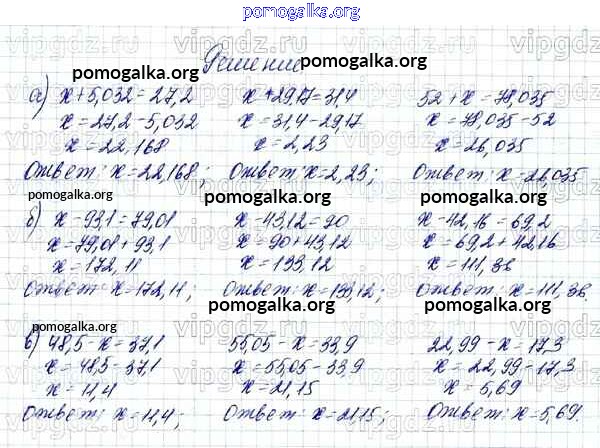 pomogalka.org
Решение
pomogalka.org pomogalka.org
а) x+5,032=27,2 x+29,17=31,4 52+x=78,035
x=27,2-5,032 x=31,4-29,17 x=78,035-52
x=22,168 x=2,23 x=26,035
Ответ: x=22,168; Ответ: x=2,23; Ответ: x=26,035
pomogalka.org pomogalka.org pomogalka.org
б) x-93,1=79,01 x-43,12=90 x-42,16=69,2
x=79,01+93,1 x=90+43,12 x=69,2+42,16
x=172,11 x=133,12 x=111,36
Ответ: x=172,11; Ответ: x=133,12; Ответ: x=111,36.
pomogalka.org pomogalka.org pomogalka.org
в) 48,5-x=37,1 55,05-x=33,9 22,99-x=17,3
x=48,5-37,1 x=55,05-33,9 x=22,99-17,3
x=11,4 x=21,15 x=5,69
Ответ: x=11,4; Ответ: x=21,15; Ответ: x=5,69.